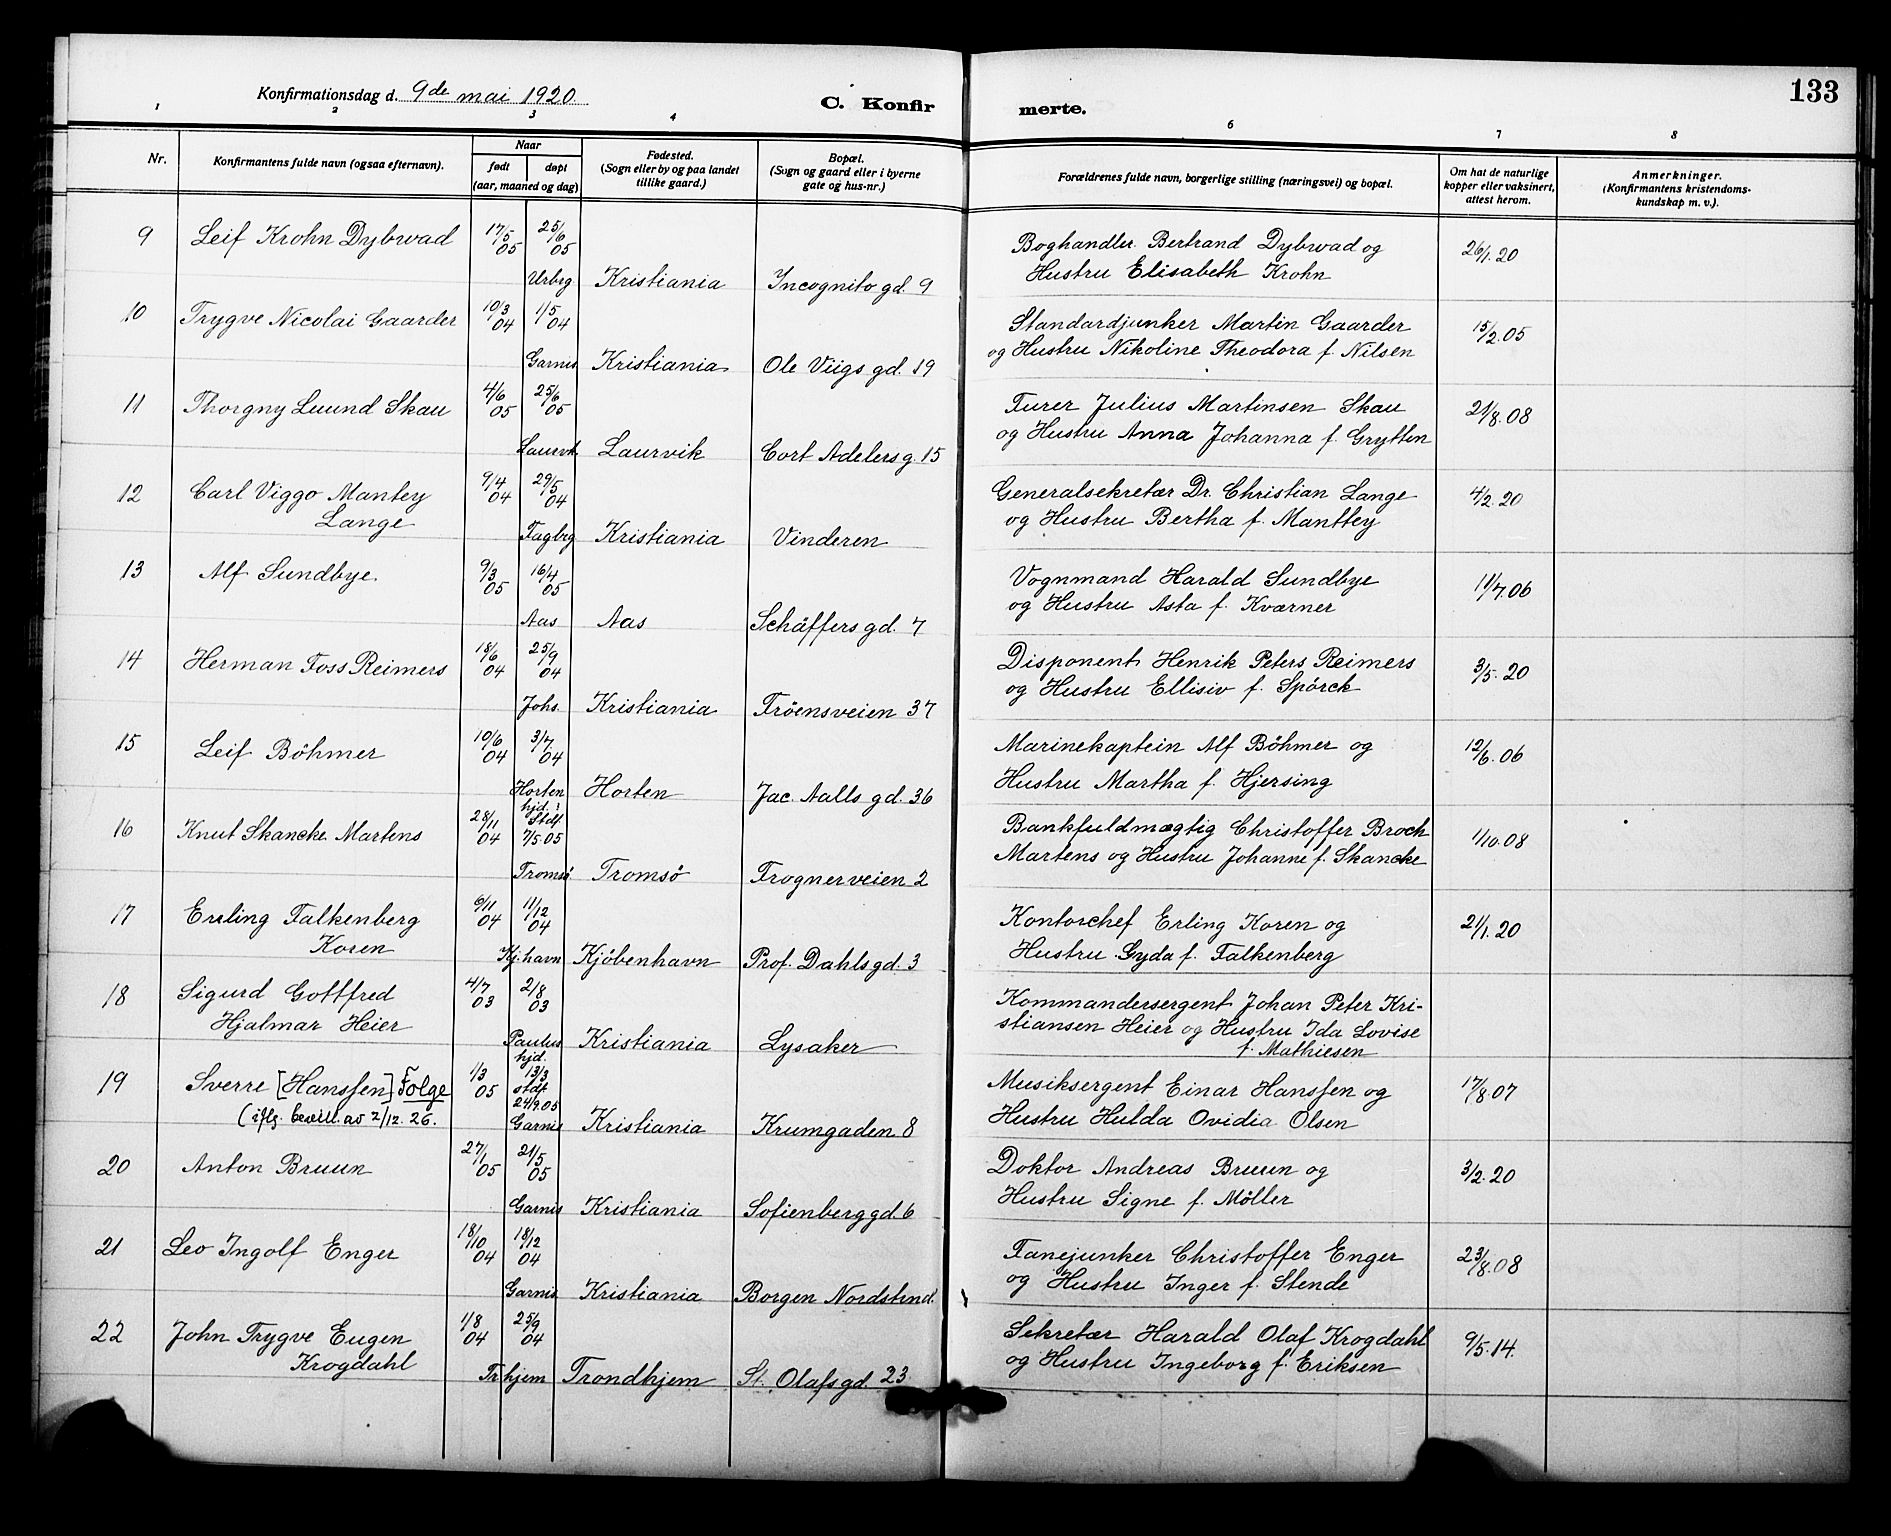 133
Konfirmationsdag d. 9de mai 1920.
C. Konfirmerte.
1 2 3 4 6 7 8
Nr.
Konfirmantens fulde navn (ogsaa efternavn).
Naar
født døpt
(aar, maaned og dag)
Fødested.
(Sogn eller by og paa landet
tillike gaard.)
Bopæl.
(Sogn og gaard eller i byerne
gate og hus-nr.)
Forældrenes fulde navn, borgerlige stilling (næringsvei) og bopæl.
Om hat de naturlige
kopper eller vaksinert,
attest herom.
Anmerkninger.
(Konfirmantens kristendoms-
kundskap m. v.).
9 Leif Krohn Dybwad 17/5 05 25/6 05 Boghandler Bertrand Dybwad og 26/1.20
Urbrg Kristiania Incognito gd. 9 Hustru Elisabeth Krohn
10 Trygve Nicolai Gaarder 10/3 04 1/5 04 Standardjunker Martin Gaarder 15/2.05
Garnis Kristiania Ole Viigs gd. 19 og Hustru Nikoline Theodora f. Nilsen
11 Thorgny Luund Skau 4/6 05 25/6 05 Furer Julius Martinsen Skau 21/8.08
Laurvk. Laurvik Cort Adelers g. 15 og Hustru Anna Johanna f. Grytten
12 Carl Viggo Mantey 9/4 04 29/5 04 Generalsekretær Dr. Christian Lange 4/2.20
Lange
Fagbrg Kristiania Vinderen og Hustru Bertha f. Manttey
13 Alf Sundbye. 9/3 05 16/4 05 Vognmand Harald Sundbye 11/7.06
Aas Aas Schäffers gd. 7 og Hustru Asta f. Kværner
14 Herman Foss Reimers 18/6 04 25/9 04 Disponent Henrik Peters Reimers 3/5.20
Johs. Kristiania Fröensveien 37 og Hustru Ellisiv f. Spörck
15 Leif Böhmer 10/6 04 3/7 04 Marinekaptein Alf Böhmer og 12/6.06
Horten Horten Jac. Aalls gd. 36 Hustru Martha f. Hjersing
16 Knut Skancke Martens 28/11 04 hjd. : Stdf 7/5.05 Bankfuldmægtig Christoffer Broch 1/10.08
Tromsö Tromsö Frognerveien 2 Martens og Hustru Johanne f. Skancke
17 Erling Falkenberg 9/11 04 11/12 04 Kontorchef Erling Koren og 21/1.20
Koren
Kj.havn Kjöbenhavn Prof. Dahls gd. 3 Hustru Gyda f. Falkenberg
18 Sigurd Gottfred 4/7 03 2/8 03 Kommandersergent Johan Peter Kri-
Hjalmar Heier stiansen Heier og Hustru Ida Lovise
Paulus Kristiania Lysaker f. Mathiesen
19 Sverre [Hanssen] Folge 1/3 05 hjd. 13/3 stdf 24/9.05 Musiksergent Einar Hanssen og 17/8.07
(iflg. bevill. av 2/12.26.
Garnis Kristiania Krumgaden 8 Hustru Hulda Ovidia Olsen
20 Anton Bruun 27/1 05 21/5 05 Doktor Andreas Bruun og 3/2.20
Garnis Kristiania Sofienberggd. 6 Hustru Signe f. Möller
21 Leo Ingolf Enger 18/10 04 18/12 04 Fanejunker Christoffer Enger 23/8.08
Garnis. Kristiania Borgen Nordstrnd. og Hustru Inger f. Stende
22 John Trygve Eugen 1/8 04 25/9 04 Sekretær Harald Olaf Krogdahl 9/5.14.
Krogdahl
Trhjem Trondhjem St. Olafs gd. 23 og Hustru Ingeborg f. Eriksen